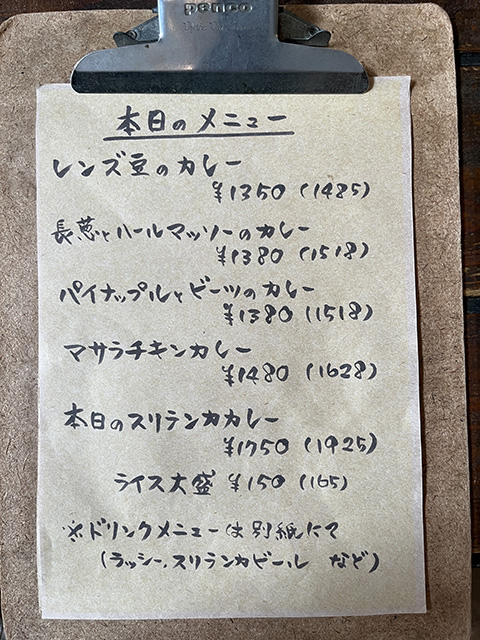 penco
本日のメニュー
レンズ豆のカレー
¥1350 (1485)
長葱とハールマッソーのカレー
¥1380 (1518)
パイナップルとビーツのカレー
¥1380 (1518)
マサラチキンカレー
¥1480 (1628)
本日のスリランカカレー
¥1750 (1925)
ライス大盛 ¥150 (165)
※ドリンクメニューは別紙にて
(ラッシー、スリランカビール など)